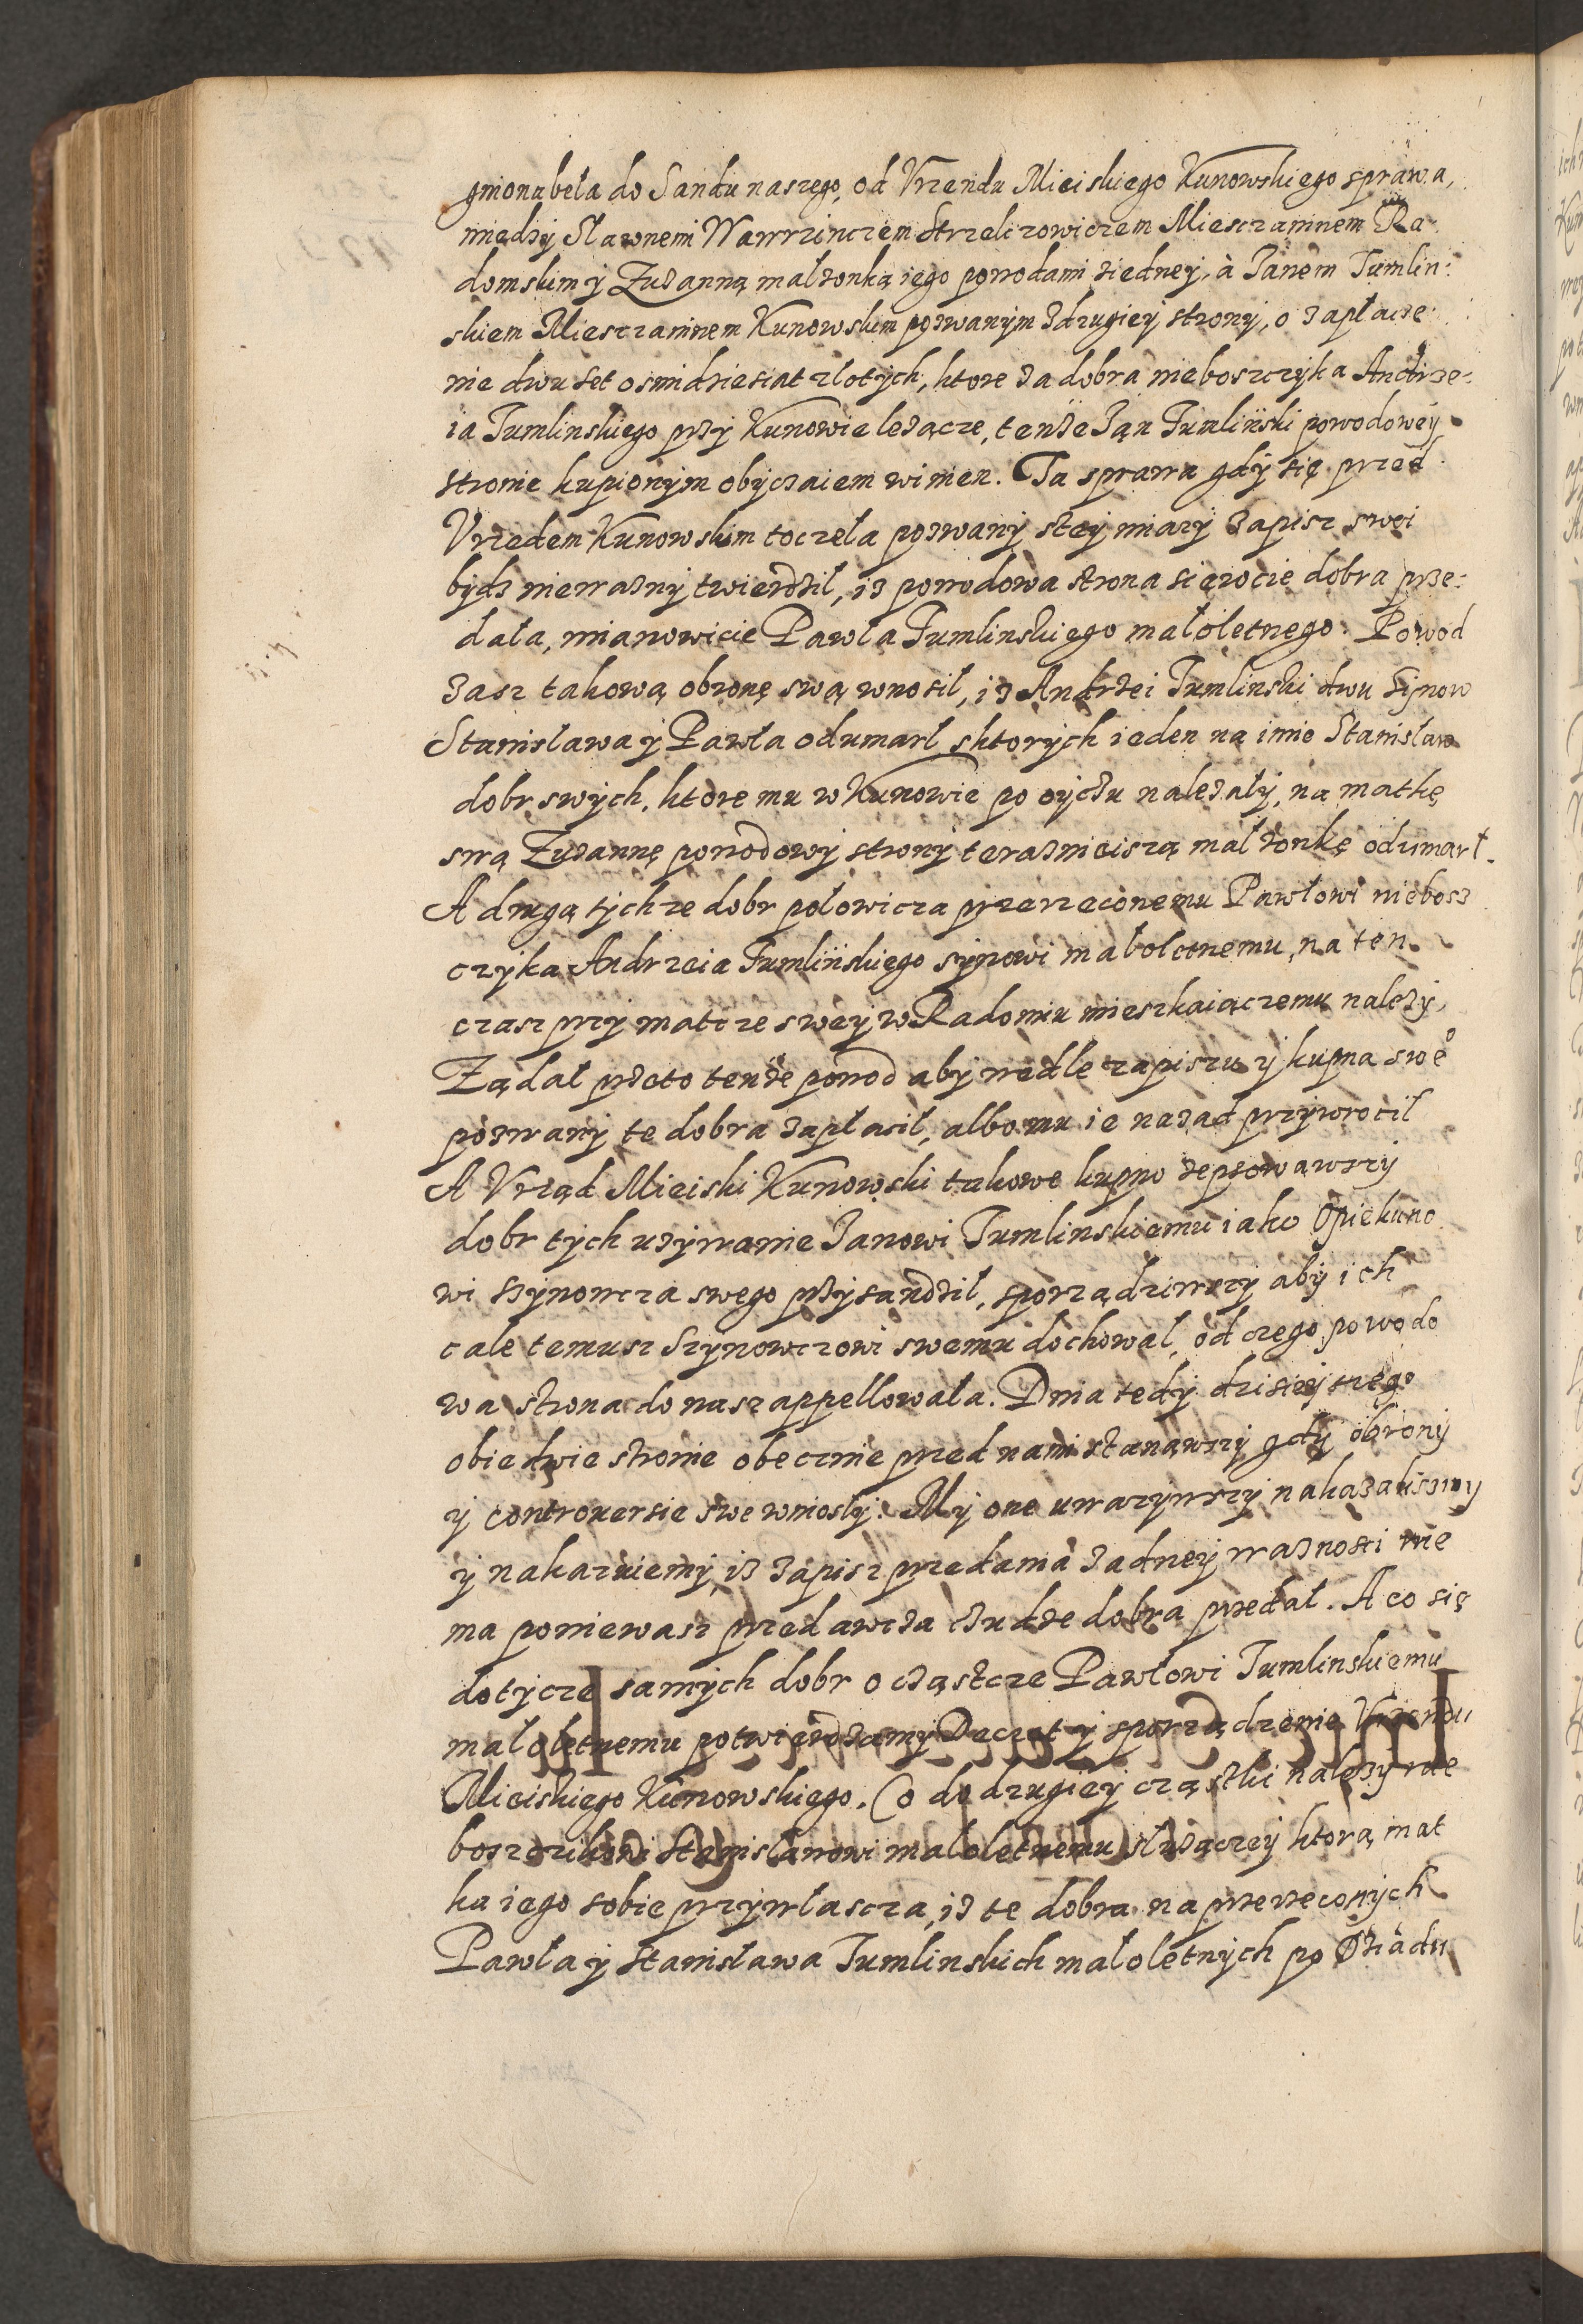 gmonubeła do Sandu naszego, od Vrzendu Mieiskiego Kunowskiego sprawa,
miedzy Sławnemi Wawrzinczem Strzelczowiczem Miesczaninem Ra
domskim y Zuzanną małzonką iego powodami ziedney, à Janem Tumlin:
skiem Miesczaninem Kunowskim pozwanym zdrugiey strony, o zapłacze
nie dwu set osmidziesiat złotych, ktore za dobra nieboszczyka Andrze:
ia Tumlinskiego przy Kunowie lezącze, tenze Jan Tumlinski powodowey
stronie kupionym obyczaiem winien. Ta sprawa gdy się przed
Vrzedem Kunowskim toczeła pozwany stey miary zapisz swoi
bydz niewazny twierdził, iz powodowa strona sierocie dobra prze:
dała, mianowicie Pawła Tumlinskiego małoletnego. Powod
zasz takową obronę swą wnosił, iz Andrzei Tumlinski dwu Synow
Stanisława y Pawła odumarł sktorych ieden na imie Stanisław
dobr swych, ktore mu w Kunowie po oyczu nalezały, na matkę
swą Zuzannę powodowy strony terazniciszą małzonkę odumarł.
A drugą tychze dobr połowicza przerzeconemu Pawłowi niebosz
czyka Andrzeia Tumlinskiego synowi małoletnemu, na ten
czasz przy matcze swey w Radomiu mieszkaiączemu nalezy,
Ządał przeto tenze powod aby wedle zapiszu y kupna sweº
pozwany te dobra zapłacił, albo mu ie nazad przywrocił
A Vrząd Mieiski Kunowski takowe kupno zepsowawszy
dobr tych uzywanie Janowi Tumlinskiemu iako Opiekuno
wi szynowcza swego przysandził, sporządziwszy aby ich
cale temusz Szynowczowi swemu dochował, od czego powodo
wa strona do nasz appellowała. Dnia tedy dzisieyszego
obiedwie stronie obecznie przed nami stanąwszy gdy obrony
y controuersie swe wniosły. My one uwazywszy nakazalismy
y nakazuiemy, iz zapisz przedania zadney waznosti nie
ma poniewasz przedawcza czudze dobra przedał. A co się
dotycze samych dobr o cząstcze Pawłowi Tumlinskiemu
małoletnemu potwierdzamy Decret y sporządzenie Vrzendu
Mieiskiego Kunowskiego. Co do drugiey cząstki nalezy nie
boszczikowi Stanisławowi małoletnemu słuząćzey ktorą mat
ka iego sobie przywłascza, iz te dobra na przerzeconych
Pawła y Stanisława Tumlinskich małoletnych po Dziadu